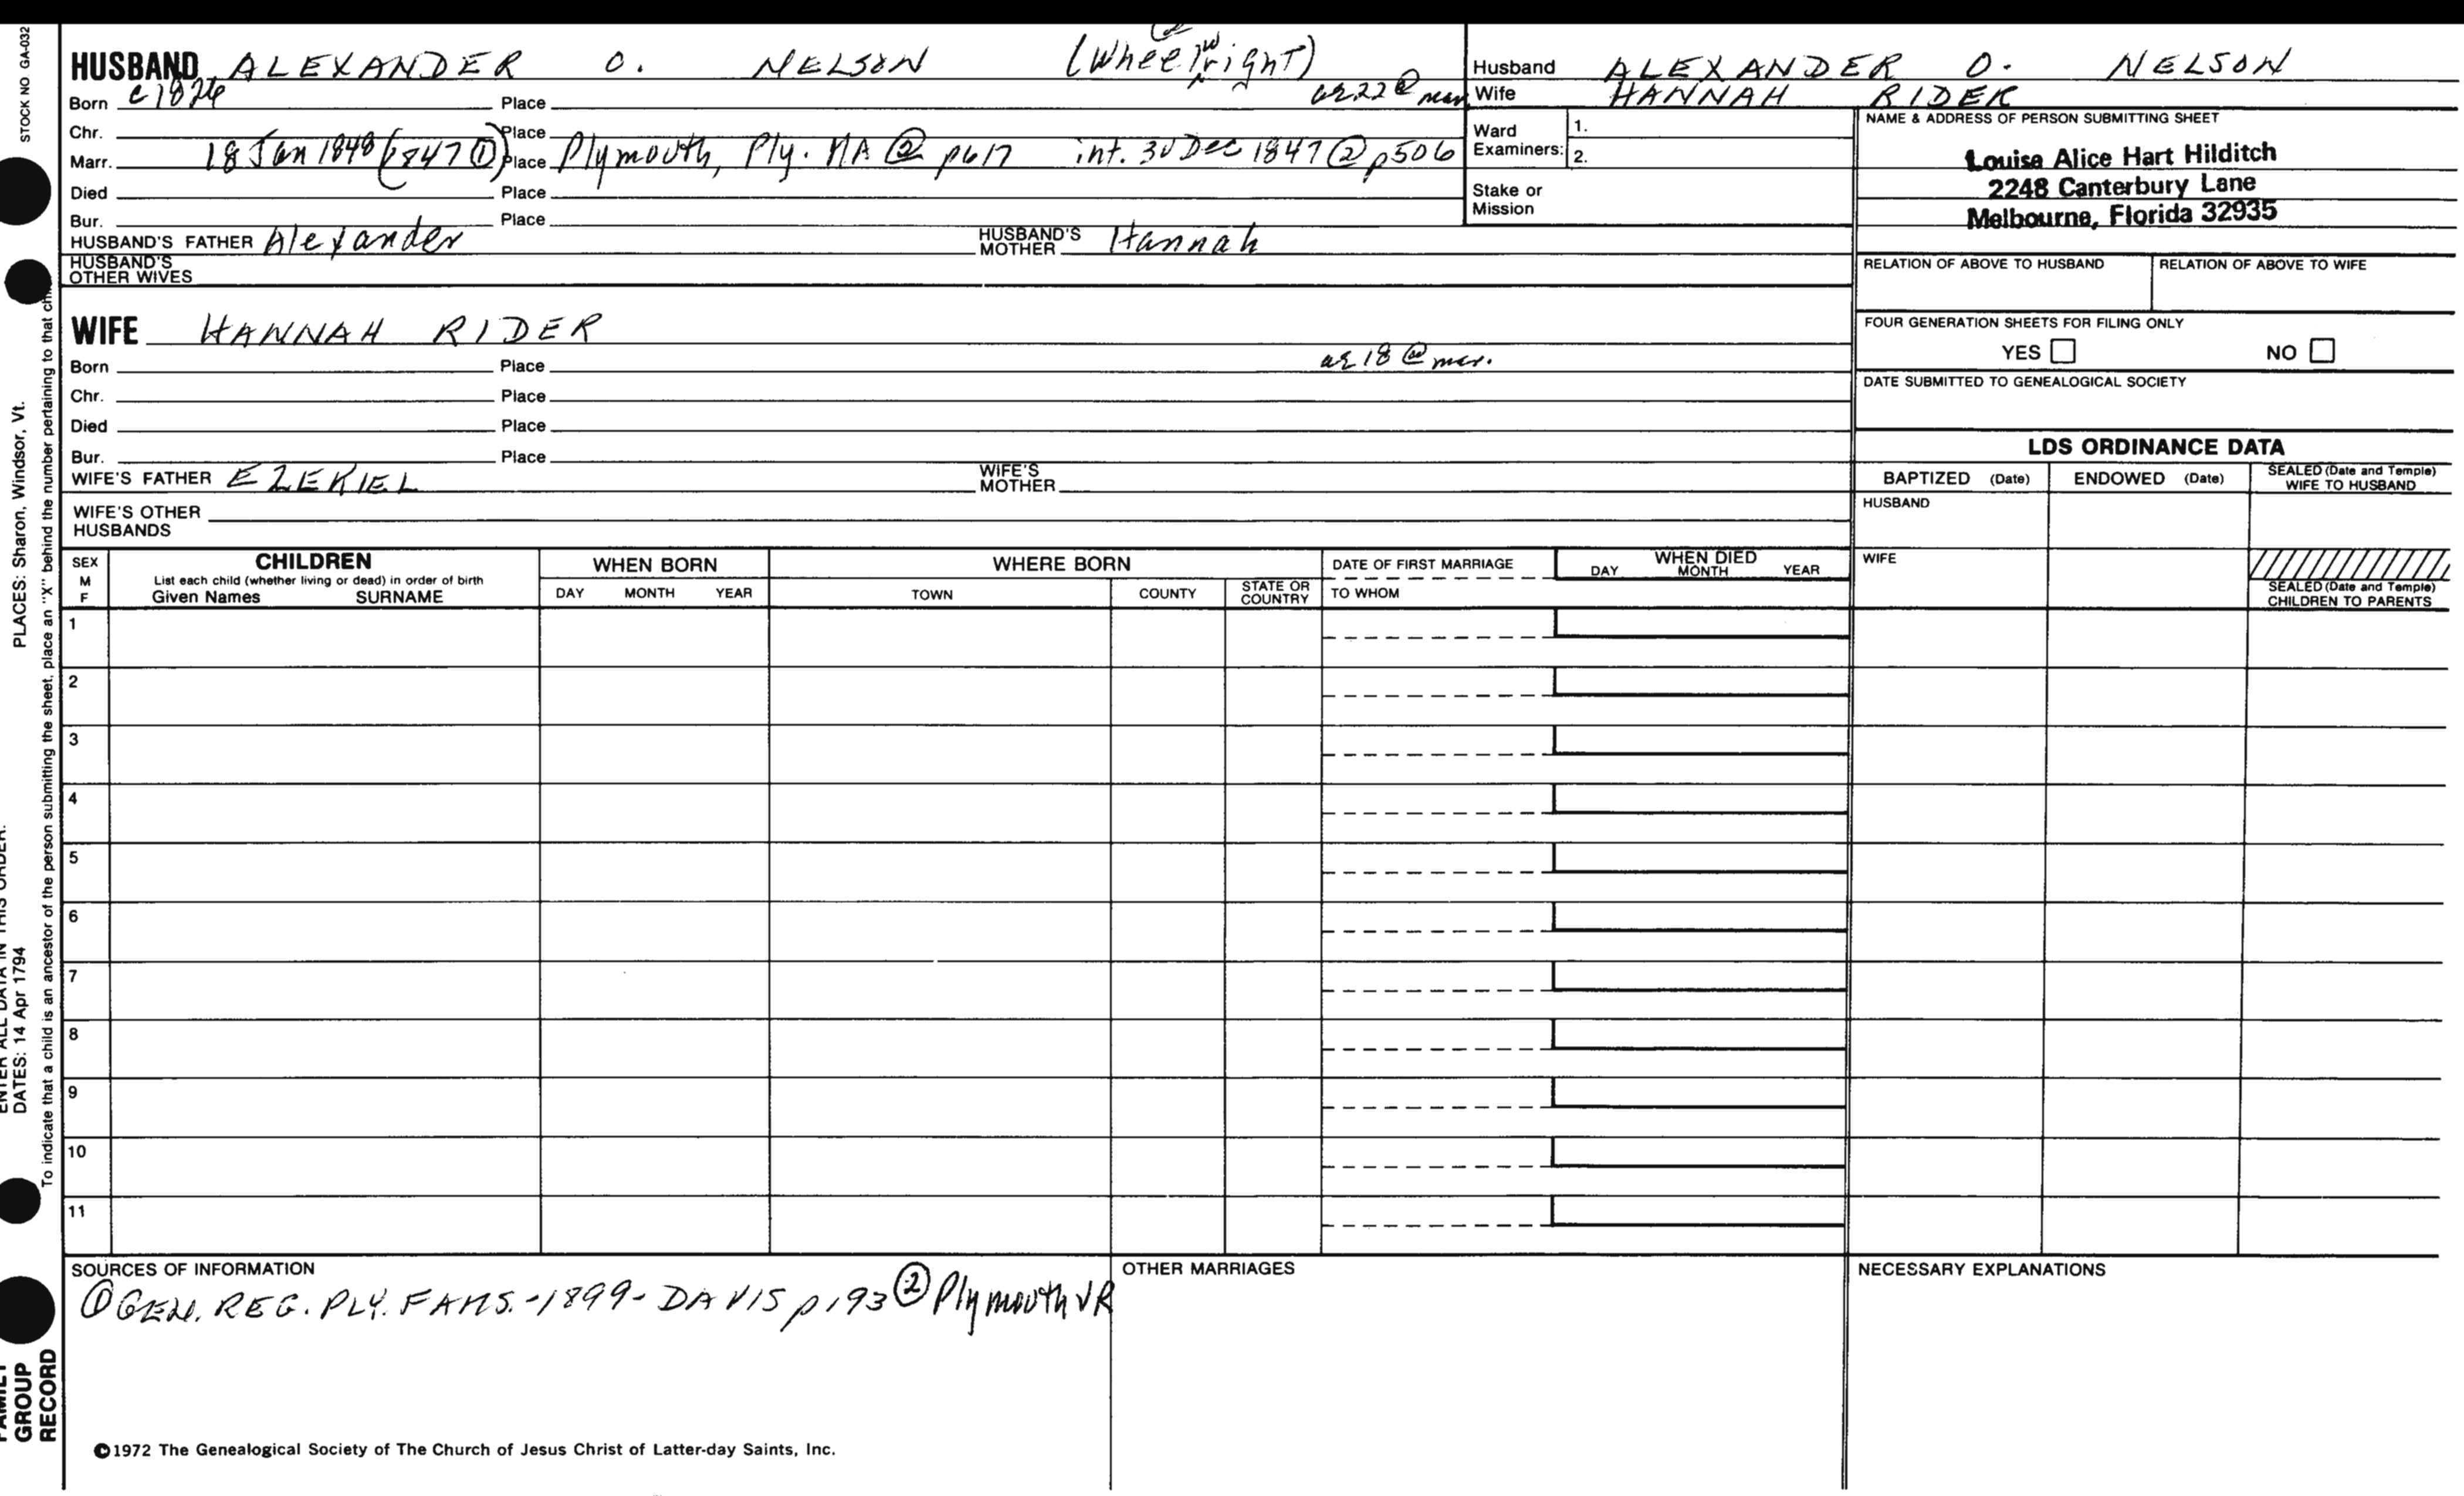 STOCK NO GA-032
PLACES: Sharon, Windsor, Vt.
ENTER ALL DATA IN THIS ORDER:
DATES: 14 Apr 1794
To indicate that a child is an ancestor of the person submitting the sheet, place an "X" behind the number pertaining to that
FAMILY
GROUP
RECORD
HUSBAND ALEXANDER O. NELSON (Wheelwright)
Born c1826 Place ae 22 @ mar
Chr. Place
Marr. 18 Jan 1848 (1847 ①) Place Plymouth, Ply. MA ② p617 int. 30 Dec 1847 ② p506
Died Place
Bur. Place
HUSBAND'S FATHER Alexander HUSBAND'S MOTHER Hannah
HUSBAND'S
OTHER WIVES
WIFE HANNAH RIDER
Born Place ae 18 @ mar.
Chr. Place
Died Place
Bur. Place
WIFE'S FATHER EZEKIEL WIFE'S MOTHER
WIFE'S OTHER
HUSBANDS
Husband ALEXANDER O. NELSON
Wife HANNAH RIDER
Ward
Examiners: 1.
2.
Stake or
Mission
NAME & ADDRESS OF PERSON SUBMITTING SHEET
Louisa Alice Hart Hilditch
2248 Canterbury Lane
Melbourne, Florida 32935
RELATION OF ABOVE TO HUSBAND RELATION OF ABOVE TO WIFE
FOUR GENERATION SHEETS FOR FILING ONLY
YES NO
DATE SUBMITTED TO GENEALOGICAL SOCIETY
LDS ORDINANCE DATA
BAPTIZED (Date) ENDOWED (Date) SEALED (Date and Temple)
WIFE TO HUSBAND
HUSBAND
WIFE
SEALED (Date and Temple)
CHILDREN TO PARENTS
SEX
M
F
CHILDREN
List each child (whether living or dead) in order of birth
Given Names SURNAME
WHEN BORN
DAY MONTH YEAR
WHERE BORN
TOWN COUNTY STATE OR COUNTRY
DATE OF FIRST MARRIAGE
TO WHOM
WHEN DIED
DAY MONTH YEAR
1
2
3
4
5
6
7
8
9
10
11
SOURCES OF INFORMATION
① GEN. REG. PLY. FAMS. - 1899 - DAVIS p193 ② Plymouth VR
OTHER MARRIAGES
NECESSARY EXPLANATIONS
©1972 The Genealogical Society of The Church of Jesus Christ of Latter-day Saints, Inc.